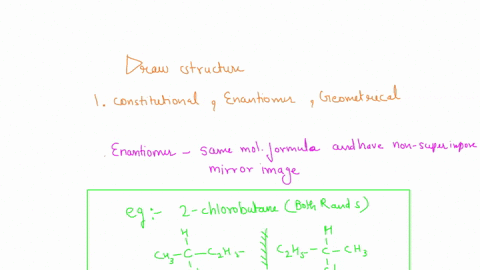 Draw structure
1. constitutional, Enantiomer, Geometrical
Enantiomer - same mol. formula and have non-super impose
mirror image
eg:- 2-chlorobutane (Both R and S)
H H
CH3-C-C2H5- C2H5-C-CH3